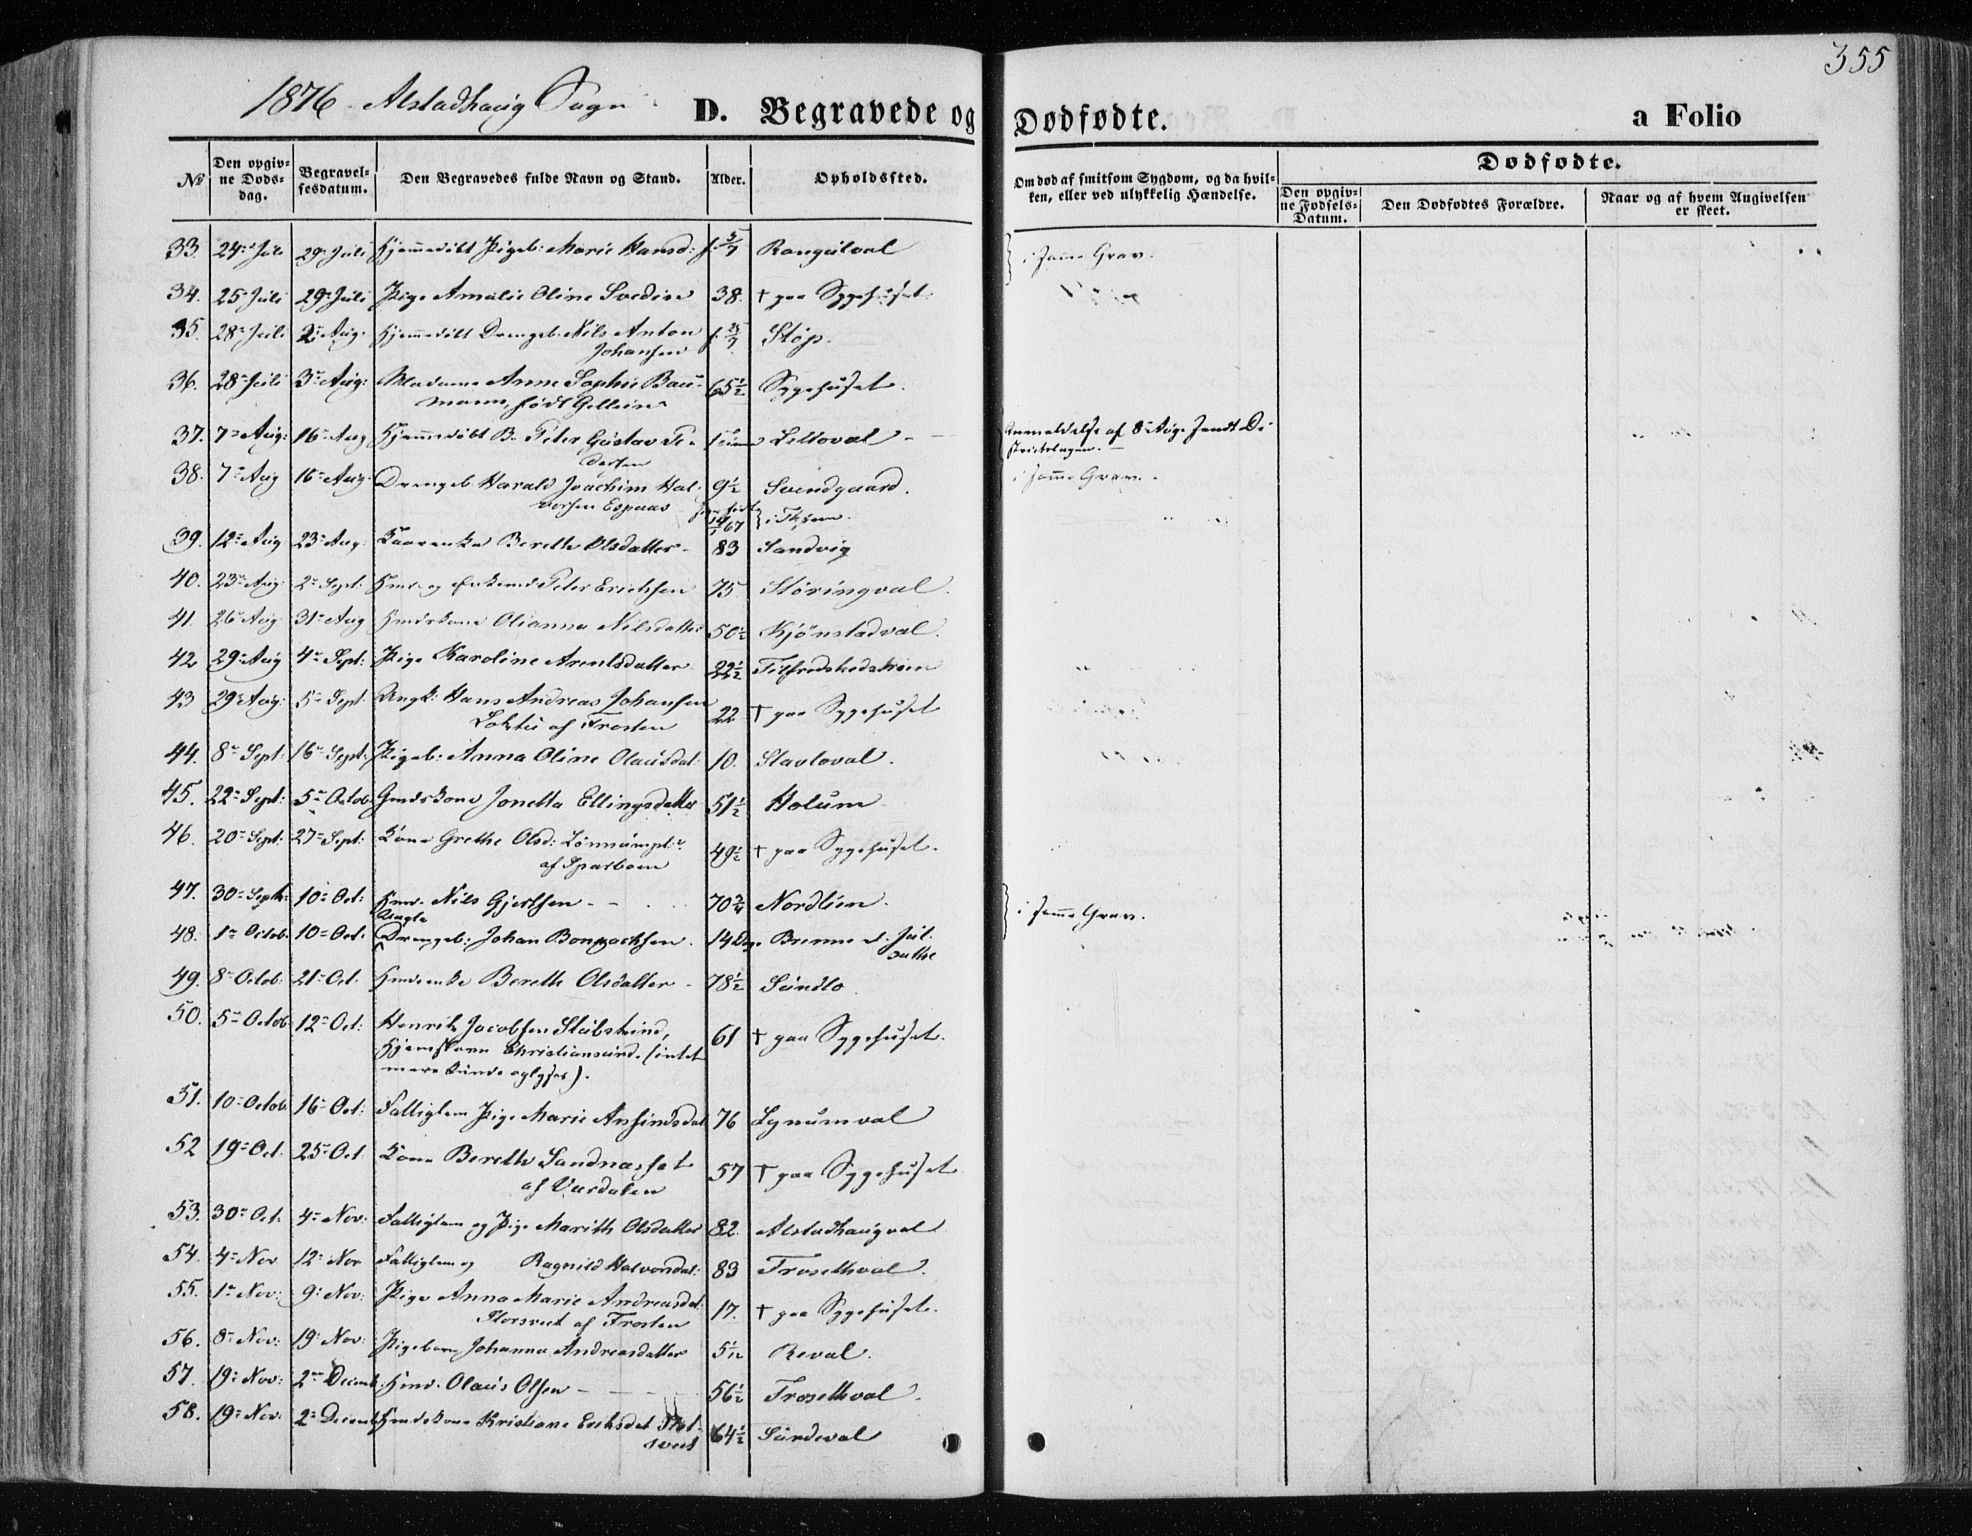 355
1876 Alstadhaug Sogn
D. Begravede og Dødfødte.
a Folio
No
Den opgivne Døds-dag.
Begravelsesdatum.
Den Begravedes fulde Navn og Stand.
Alder.
Opholdssted.
Om død af smitsom Sygdom, og da hvilken, eller ved ulykkelig Hændelse.
Dødfødte.
Den opgivne Fødsels-Datum.
Den Dødfødtes Forældre.
Naar og af hvem Angivelsen er skeet.
33. 24 Juli 29 Juli Hjemmedøbt Pigeb: Marie Hansd: f. 5/7 i samme Grav.
34. 25 Juli 29 Juli Pige Amalie Oline Svedin 38. † paa Sygehuset
35. 28 Juli 2 Aug. Hjemmedøbt Drengeb. Nils Anton
Johansen
Støp.
36. 28 Juli 3 Aug: Madame Anne Sophie Bau-
mann, født 65½ Sygehuset.
37. 7 Aug: 16 Aug Hjemmedøbt B. Peter Gustav Pe-
dersen
Anmeldelse af 8 Aug. sendt Di-
striktslægen.
38. 7 Aug 16 Aug. Drengeb. Harald Joachim Hal-
vorsen Espaas 9½ Svendgaard. i samme Grav.
39. 12 Aug 23 Aug: Bereth Olsdatter 83 Sandvig
40. 23 Aug. 2 Sept. Hmd. og Enkemd Peter Erichsen 75 Støringval.
41. 26 Aug 31 Aug Hmdskone Olianna Nilsdatter 50½ Kjønstadval.
42 29 Aug 4 Sept: Pige Karoline Arentsdatter 22½
43 29 Aug: 5 Sept. Ungk: Hans Andreas Johansen
af Frosten 22 † paa Sygehuset
44. 8 Sept: 16 Sept: Pigeb: Anna Oline Olausdat: 10. Stavloval.
45. 22 Sept: 5 Octob. Gmdskone Jonetta Ellingsdatter 51½ Holum
46. 20 Sept: 27 Sept: Kone Grethe Olsd:
af Sparboen 49½ † paa Sygehuset.
47. 30 Septb: 10 Oct: Hmd. Nils Gjertsen 70¾ Nordlien. i samme Grav.
48. 1 Octob. 10 Oct. Drengeb: Johan 14 Dage
49. 8 Octob: 21 Oct. Hmdenke Bereth Olsdatter 78½ Sundlo
50. 5 Octob 12 Oct: Henrik Jacobsen
Hjemstavn Christiansund. (intet
mere kunde oplyses). 61 † paa Sygehuset.
51. 10 Octob 16 Oct: Fattiglem Pige Marie 76 Lynumval
52 19 Oct. 25 Oct Kone Bereth
af Værdalen 57 † paa Sygehuset
53. 30 Oct. 4 Nov: Fattiglem og Pige Marith Olsdatter 82. Alstadhaugval
54. 4 Nov 12 Nov Fattiglem og Ragnild Halvorsdat: 83 Frosethval.
55. 1 Nov: 9 Nov: Pige Anna Marie Andreasdat:
af Frosten 17. † paa Sygehuset.
56. 8 Nov: 19 Nov: Pigebarn Johanna Andreasdatter Reval.
57. 19 Nov: 2 Decemb: Hmd. Olaus Olsen 56½ Frosethval.
58. 19 Nov. 2 Decemb Hmdskone Kristiane 64½ Surdeval